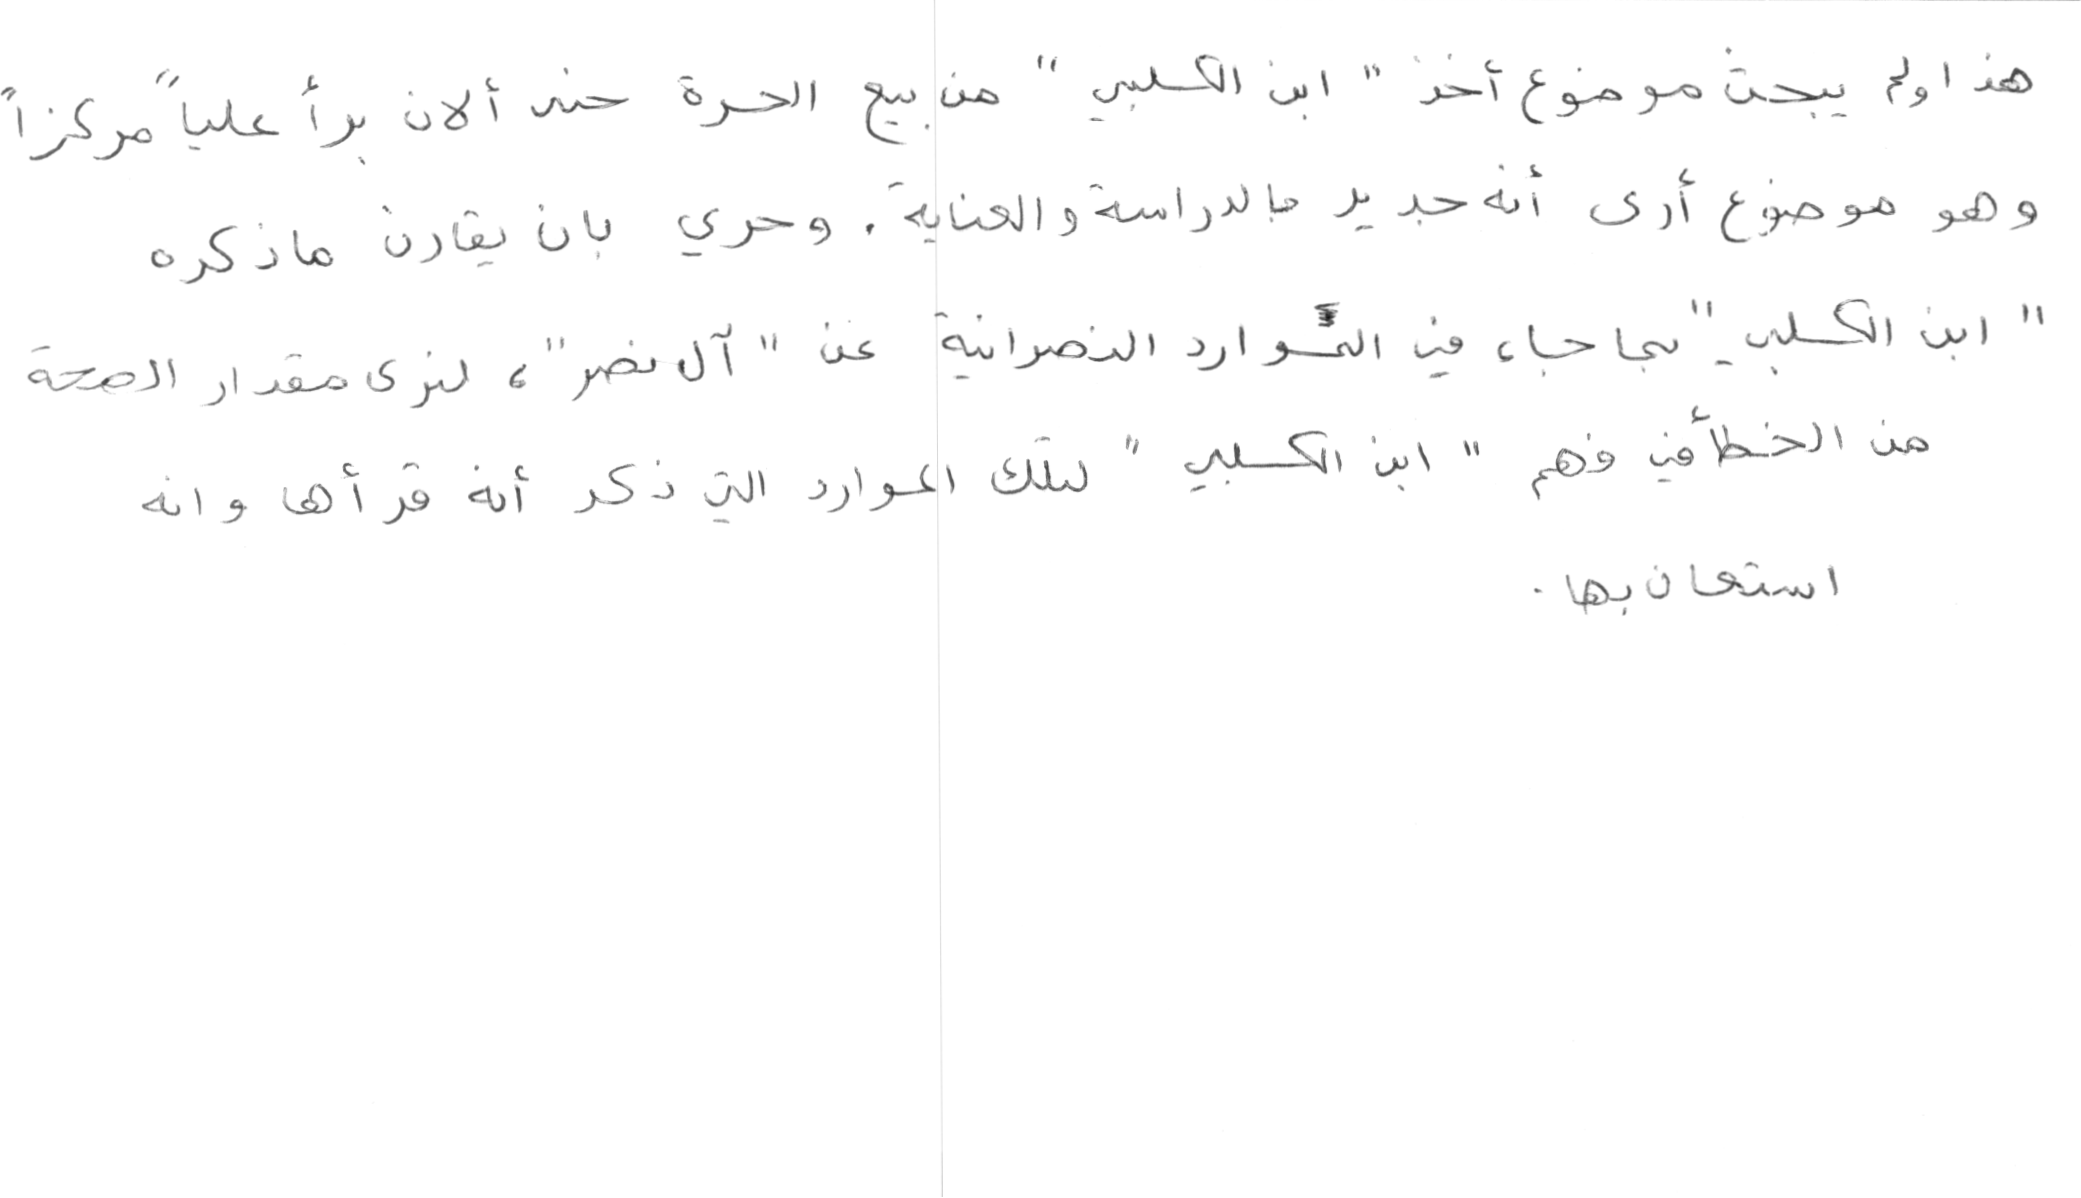 هذا ولم يبحث موضوع أخذ " ابن الكلبي " من بيع الحرة حتى ألان برأ علياً مركزاً
وهو موضوع أرى أنه جدير بالدراسة والعناية . وحري بان يقارن ما ذكره
" ابن الكلبي " بما جاء في الموارد النصرانية عن " آل نصر " ، لنرى مقدار الصحة
من الخطأ في فهم " ابن الكلبي " لتلك الموارد التي ذكر أنه قرأها وانه
استعان بها .